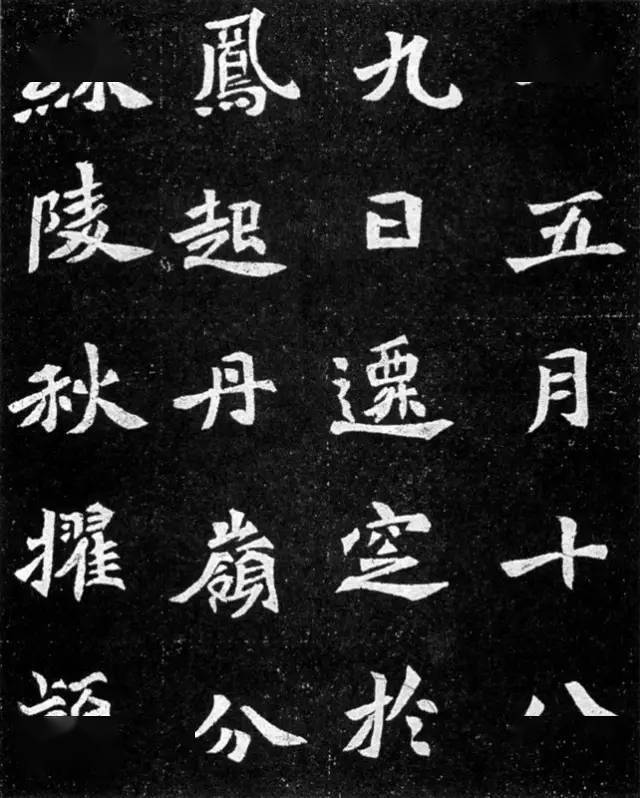 五月十八
九日遷窆於
鳳起丹嶺分
陵秋擢